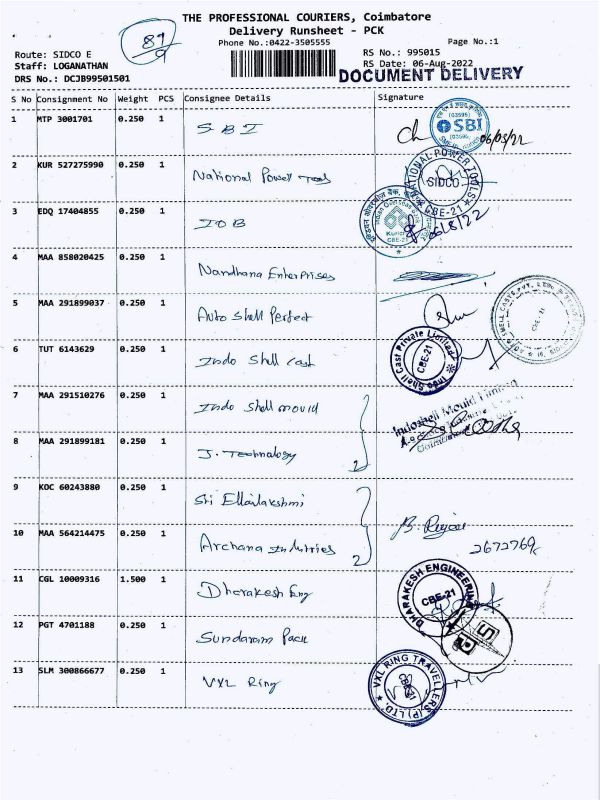 THE PROFESSIONAL COURIERS, Coimbatore
Delivery Runsheet - PCK
Phone No.:0422-3505555
Page No.:1
89
9
Route: SIDCO E
Staff: LOGANATHAN
DRS No.: DCJB99501501
RS No.: 995015
RS Date: 06-Aug-2022
DOCUMENT DELIVERY
S No Consignment No Weight PCS Consignee Details Signature
1 MTP 3001701 0.250 1 SBI
SBI
2 KUR 527275990 0.250 1 National Powell Tools
NATIONAL POWER TOOLS
SIDCO
CBE-21
3 EDQ 17404855 0.250 1 IOB
06/8/22
4 MAA 858020425 0.250 1 Nandhana Enterprises
5 MAA 291899037 0.250 1 Auto Shell Perfect
6 TUT 6143629 0.250 1 Indo Shell cast
Indo Shell Cast Private Limited
CBE-21
7 MAA 291510276 0.250 1 Indo Shell mould
Indoshell Mould Limited
8 MAA 291899181 0.250 1 J. Technology
2
9 KOC 60243880 0.250 1 Sri Ellailakshmi
10 MAA 564214475 0.250 1 Archana Industries
2
11 CGL 10009316 1.500 1 Dharakesh Eng
DHARAKESH ENGINEERING
CBE-21
12 PGT 4701188 0.250 1 Sundaram Pack
13 SLM 300866677 0.250 1 VXL Ring
VXL RING TRAVELLERS (P) LTD.